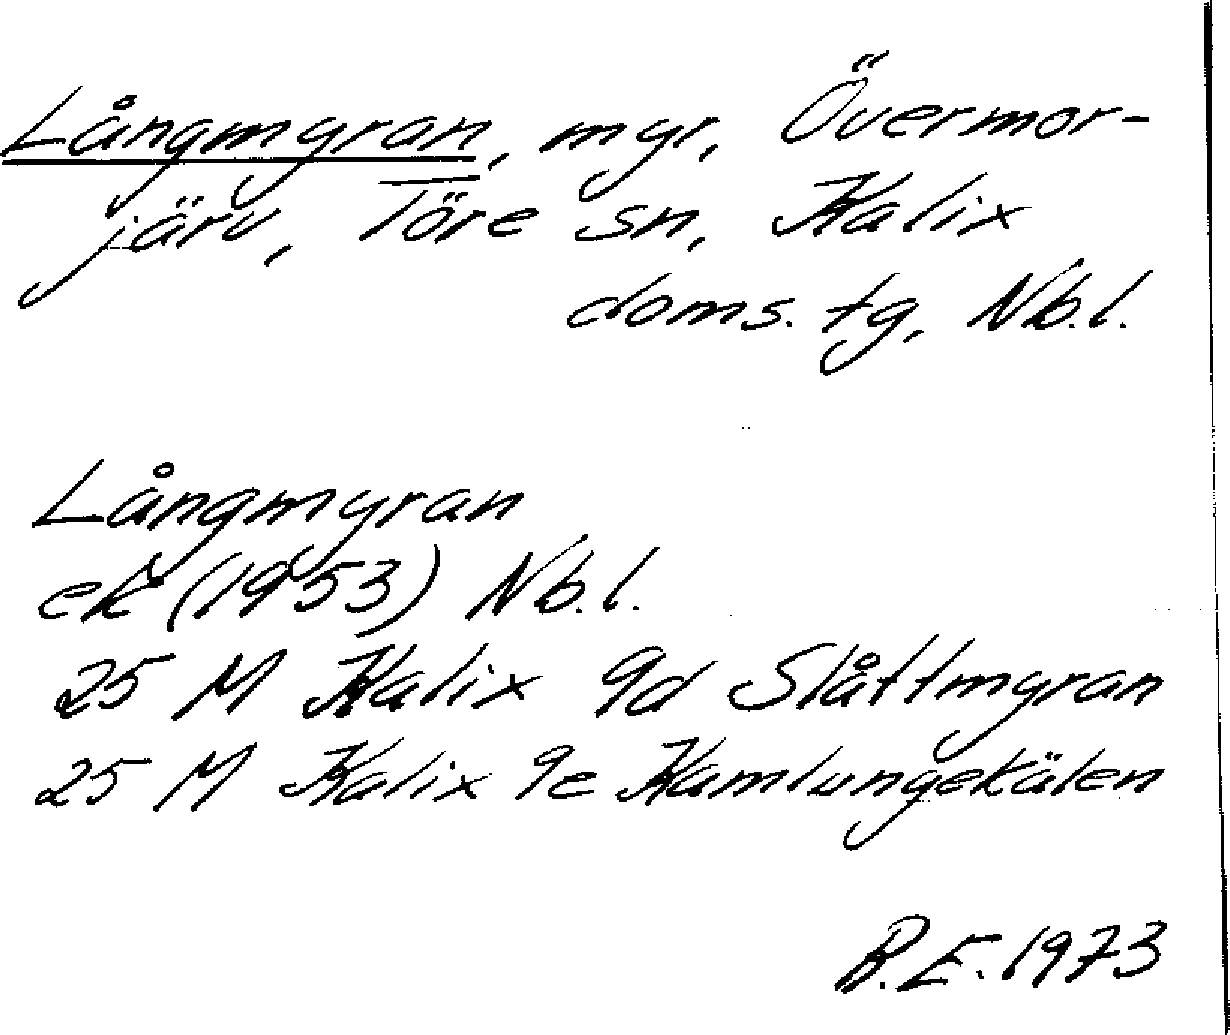 Långmyran, myr, Övermor-
järv, Töre sn, Kalix
doms. tg, Nb.l.
Långmyran
ek (1953) Nb.l.
25 M Kalix 9d Slåttmyran
25 M Kalix 9e Kamlungekälen
B.E. 1973